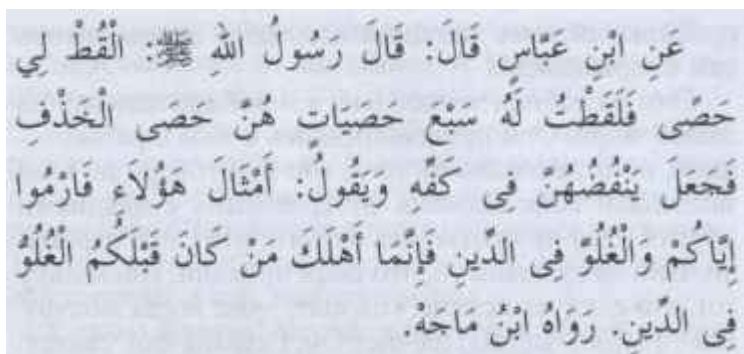 عَنِ ابْنِ عَبَّاسٍ قَالَ: قَالَ رَسُولُ اللهِ ﷺ: الْقُطْ لِي
حَصًى فَلَقَطْتُ لَهُ سَبْعَ حَصَيَاتٍ هُنَّ حَصَى الْخَذْفِ
فَجَعَلَ يَنْفُضُهُنَّ فِى كَفِّهِ وَيَقُولُ: أَمْثَالَ هٰؤُلَاءِ فَارْمُوا
إِيَّاكُمْ وَالْغُلُوَّ فِى الدِّينِ فَإِنَّمَا أَهْلَكَ مَنْ كَانَ قَبْلَكُمُ الْغُلُوُّ
فِى الدِّينِ. رَوَاهُ ابْنُ مَاجَهْ.